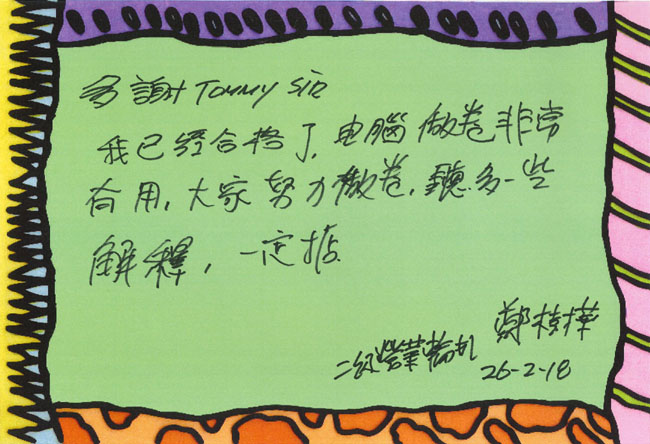 多謝 Tommy Sir
我已經合格了,电腦做卷非常
有用,大家努力做卷,聽多一些
解釋,一定掂
鄭樹華
二級營業輪机
26-2-18